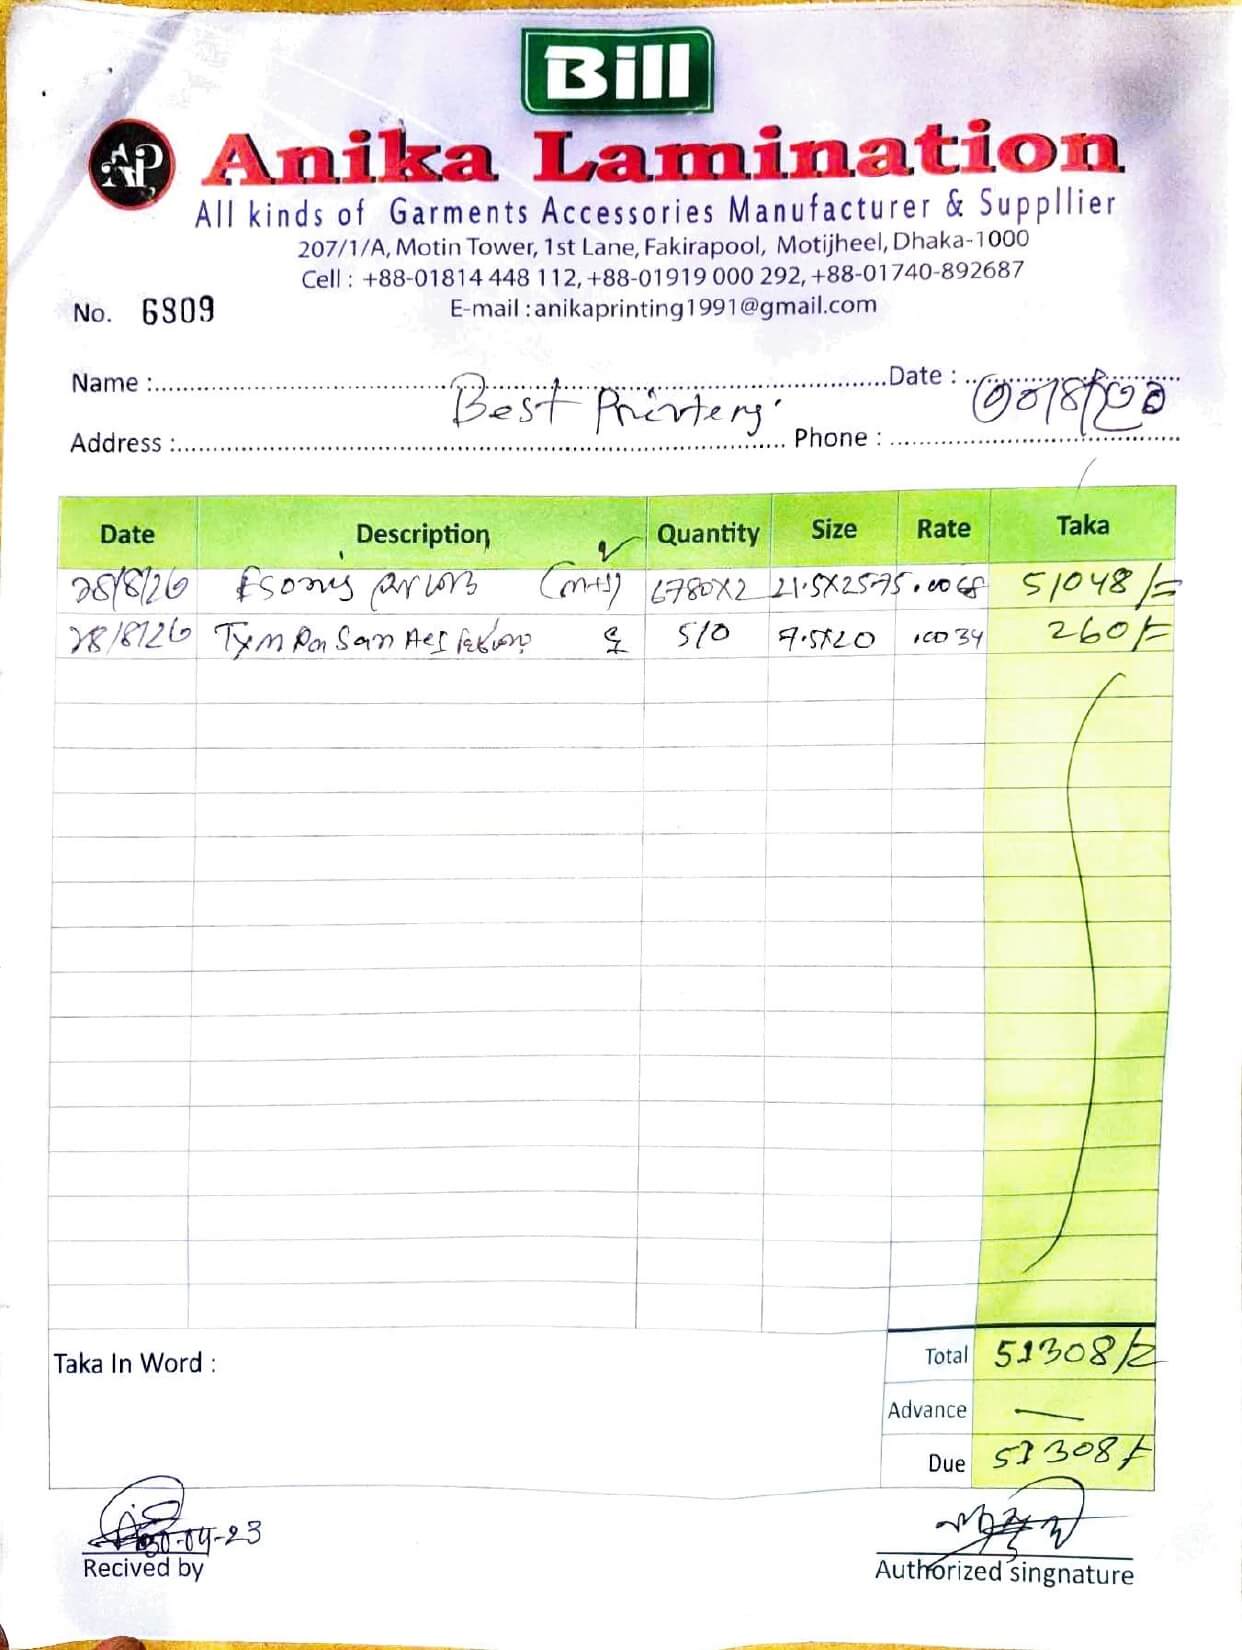 Bill
AP
Anika Lamination
All kinds of Garments Accessories Manufacturer & Suppllier
207/1/A, Motin Tower, 1st Lane, Fakirapool, Motijheel, Dhaka-1000
Cell : +88-01814 448 112, +88-01919 000 292, +88-01740-892687
No. 6809 E-mail : anikaprinting1991@gmail.com
Name : Best Printers Date :
Address : Phone :
Date Description Quantity Size Rate Taka
6780X2 21.5X25.75 .0068 51048/=
510 7.5X20 .0034 260/=
Taka In Word :
Total 51308/=
Advance —
Due 51308/=
30-04-23
Recived by
Authorized singnature